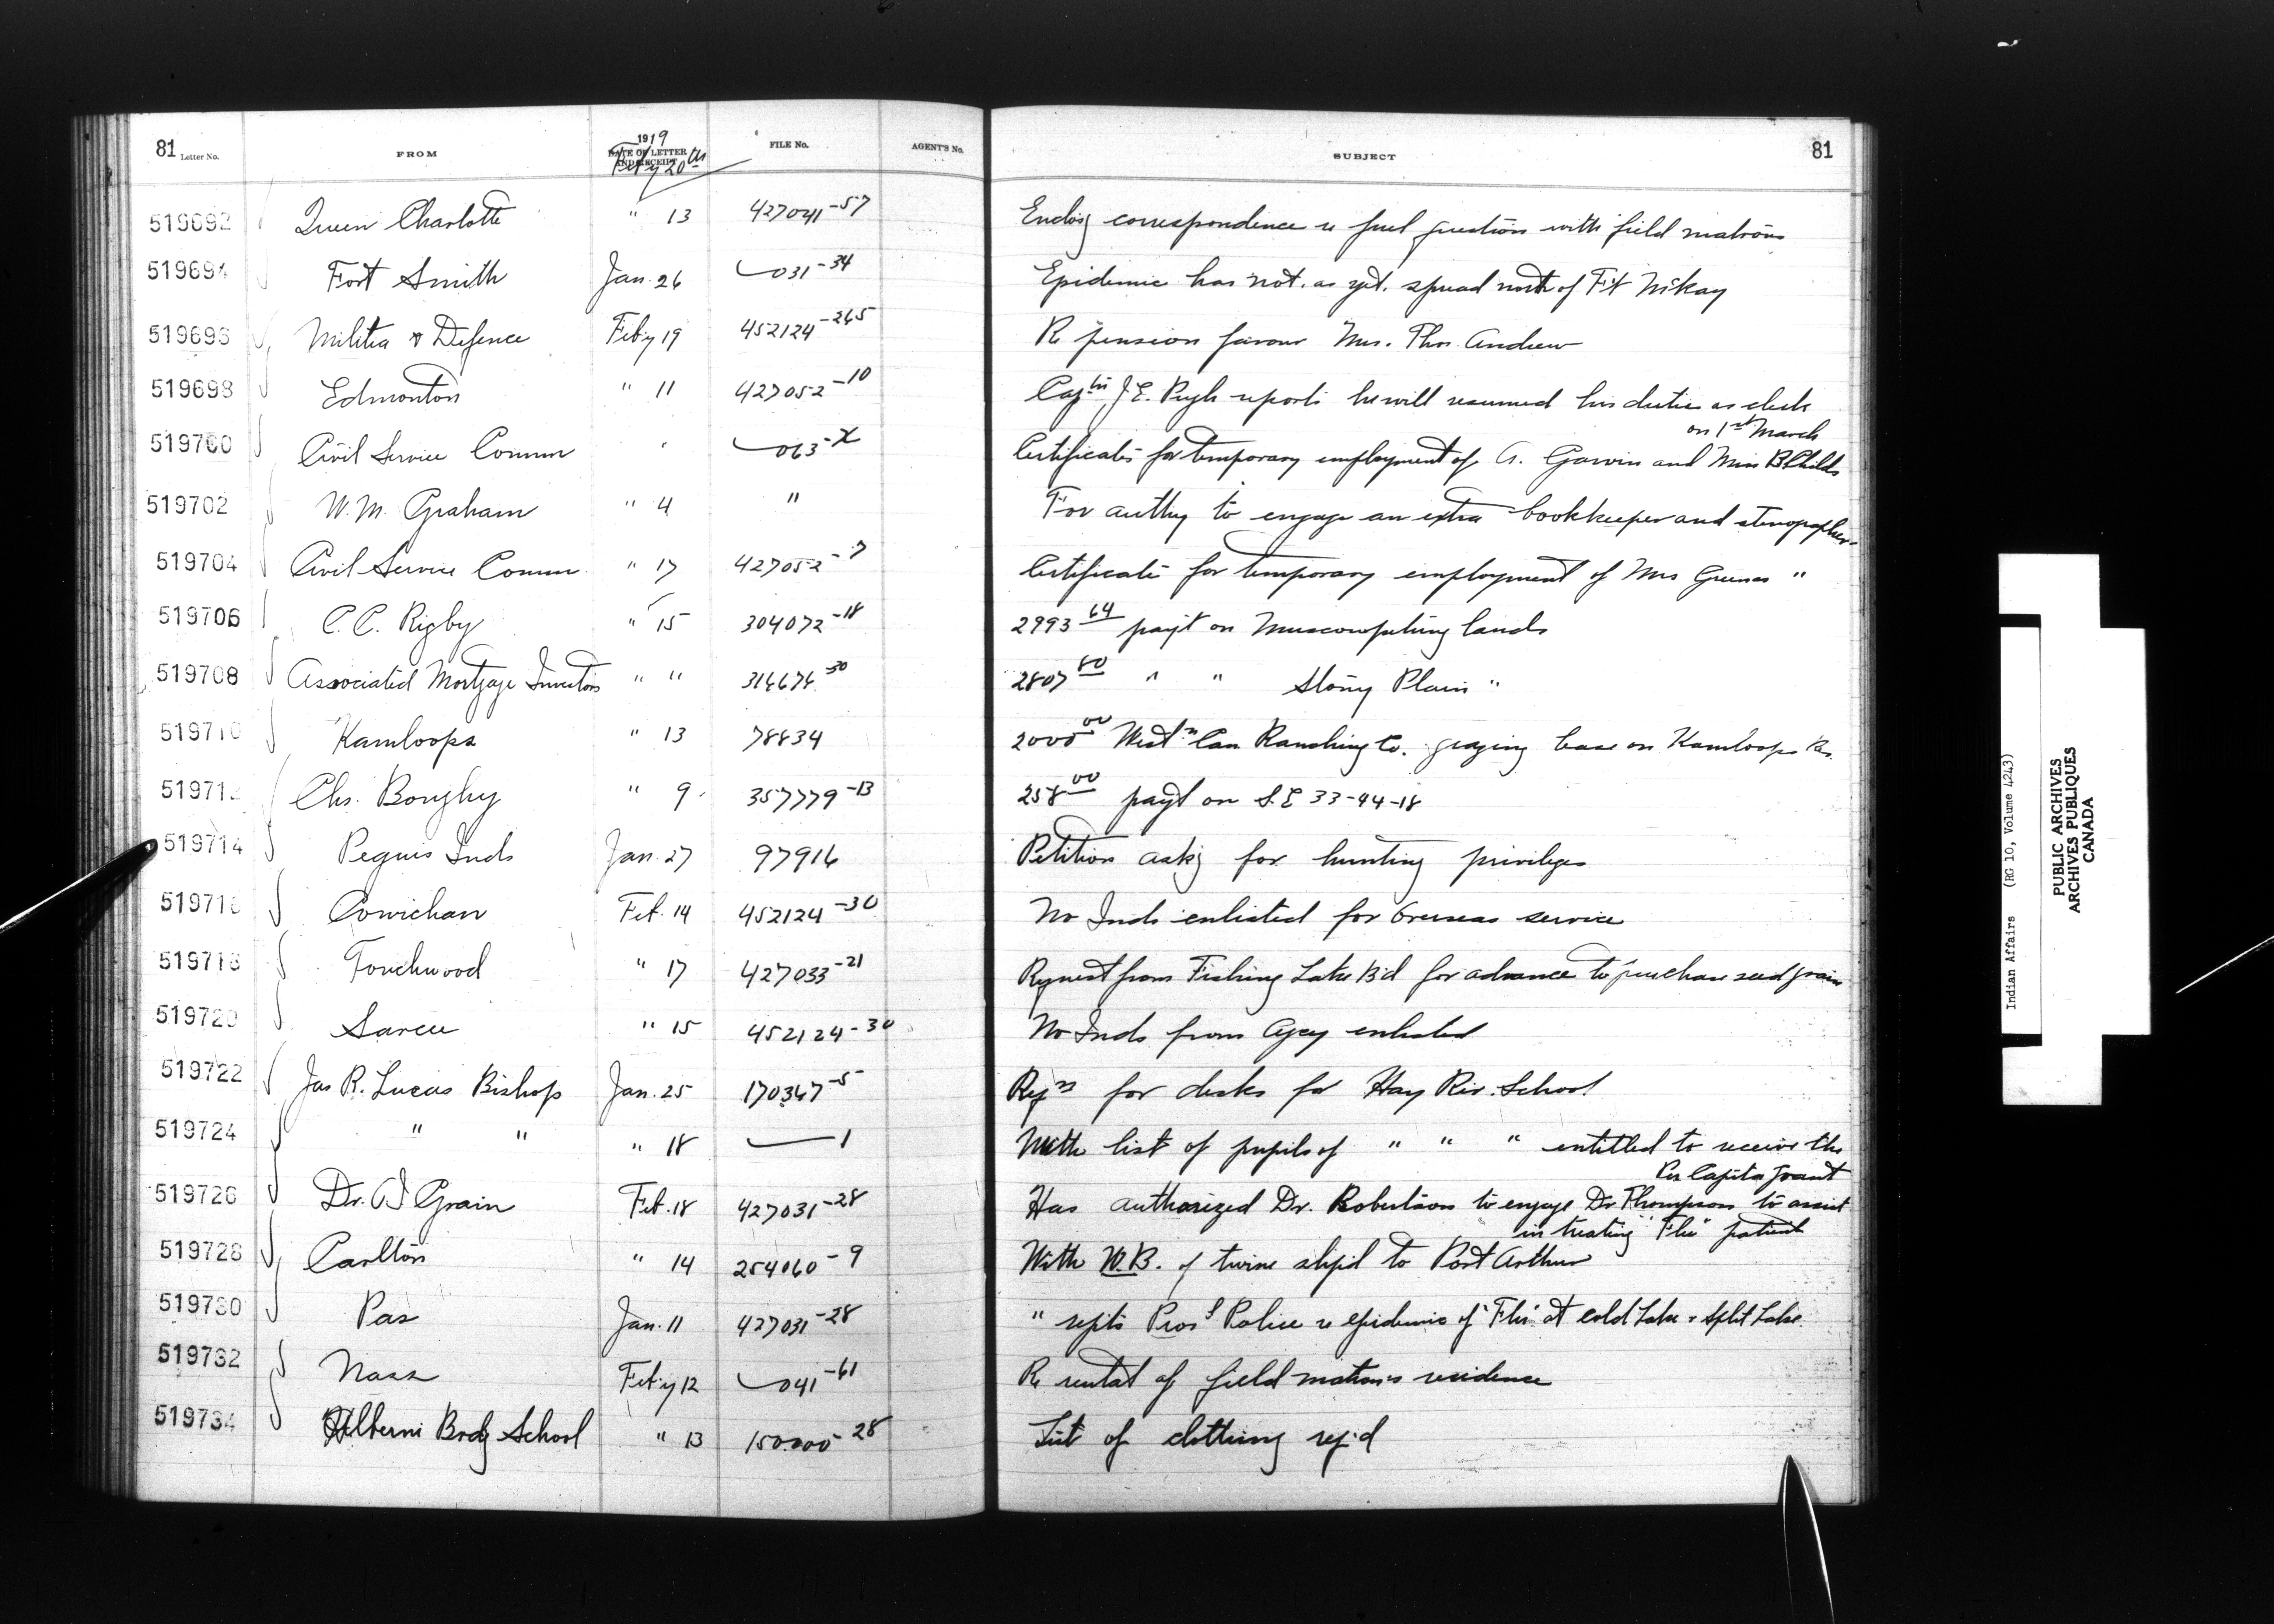 81 Letter No. FROM 1919 DATE OF LETTER AND RECEIPT Feb'y 20th FILE No. AGENT'S No. SUBJECT 81
519692 Queen Charlotte " 13 427041-57 Enclosg correspondence re fuel question with field matrons
519694 Fort Smith Jan. 26 031-34 Epidemic has not. as yet. spread north of Ft McKay
519696 Militia & Defence Feby 19 452124-265 Re pension favour Mrs. Thos. Andrew
519698 Edmonton " 11 427052-10 Captn J.E. Pugh reports he will resumed his duties as clerk
on 1st March
519700 Civil Service Commn " 063-X Certificates for temporary employment of A. Garvin and Miss B Childs
519702 W. M. Graham " 4 " For authy to engage an extra bookkeeper and stenographer
519704 Civil Service Commn " 17 427052-7 Certificate for temporary employment of Mrs Greenes "
519706 C. C. Rigby " 15 304072-18 2993 64 payt on Muscowpetung lands
519708 Associated Mortgage Investors " " 314674-30 2807 80 " " Stony Plain "
519710 Kamloops " 13 78834 2000 00 Westn Can Ranching Co. grazing lease on Kamloops Res.
519712 Chs. Boughy " 9 357779-13 258 00 payt on S.E 33-44-18
519714 Peguis Inds Jan. 27 97916 Petition askg for hunting privileges
519716 Cowichan Feb. 14 452124-30 No Inds enlisted for Overseas service
519718 Touchwood " 17 427033-21 Request from Fishing Lake B'd for advance to purchase seed grain
519720 Sarcee " 15 452124-30 No Inds from Agcy enlisted
519722 Jas R. Lucas Bishop Jan. 25 170347-5 Reqn for desks for Hay Riv. School
519724 " " " 18 1 With list of pupils of " " " entitled to receive the
Per Capita grant
519726 Dr. O I Grain Feb. 18 427031-28 Has authorized Dr. Robertson to engage Dr Thompson to assist
in treating "Flu" patient
519728 Carlton " 14 254060-9 With W.B. of twine ship'd to Port Arthur
519730 Pas Jan. 11 427031-28 " repts Provl Police re epidemic of "Flu" at Cold Lake & Split Lake
519732 Nass Feb'y 12 041-61 Re rental of field matron's residence
519734 Alberni Brdg School " 13 150000-28 List of clothing req'd
Indian Affairs (RG 10, Volume 4243)
PUBLIC ARCHIVES
ARCHIVES PUBLIQUES
CANADA